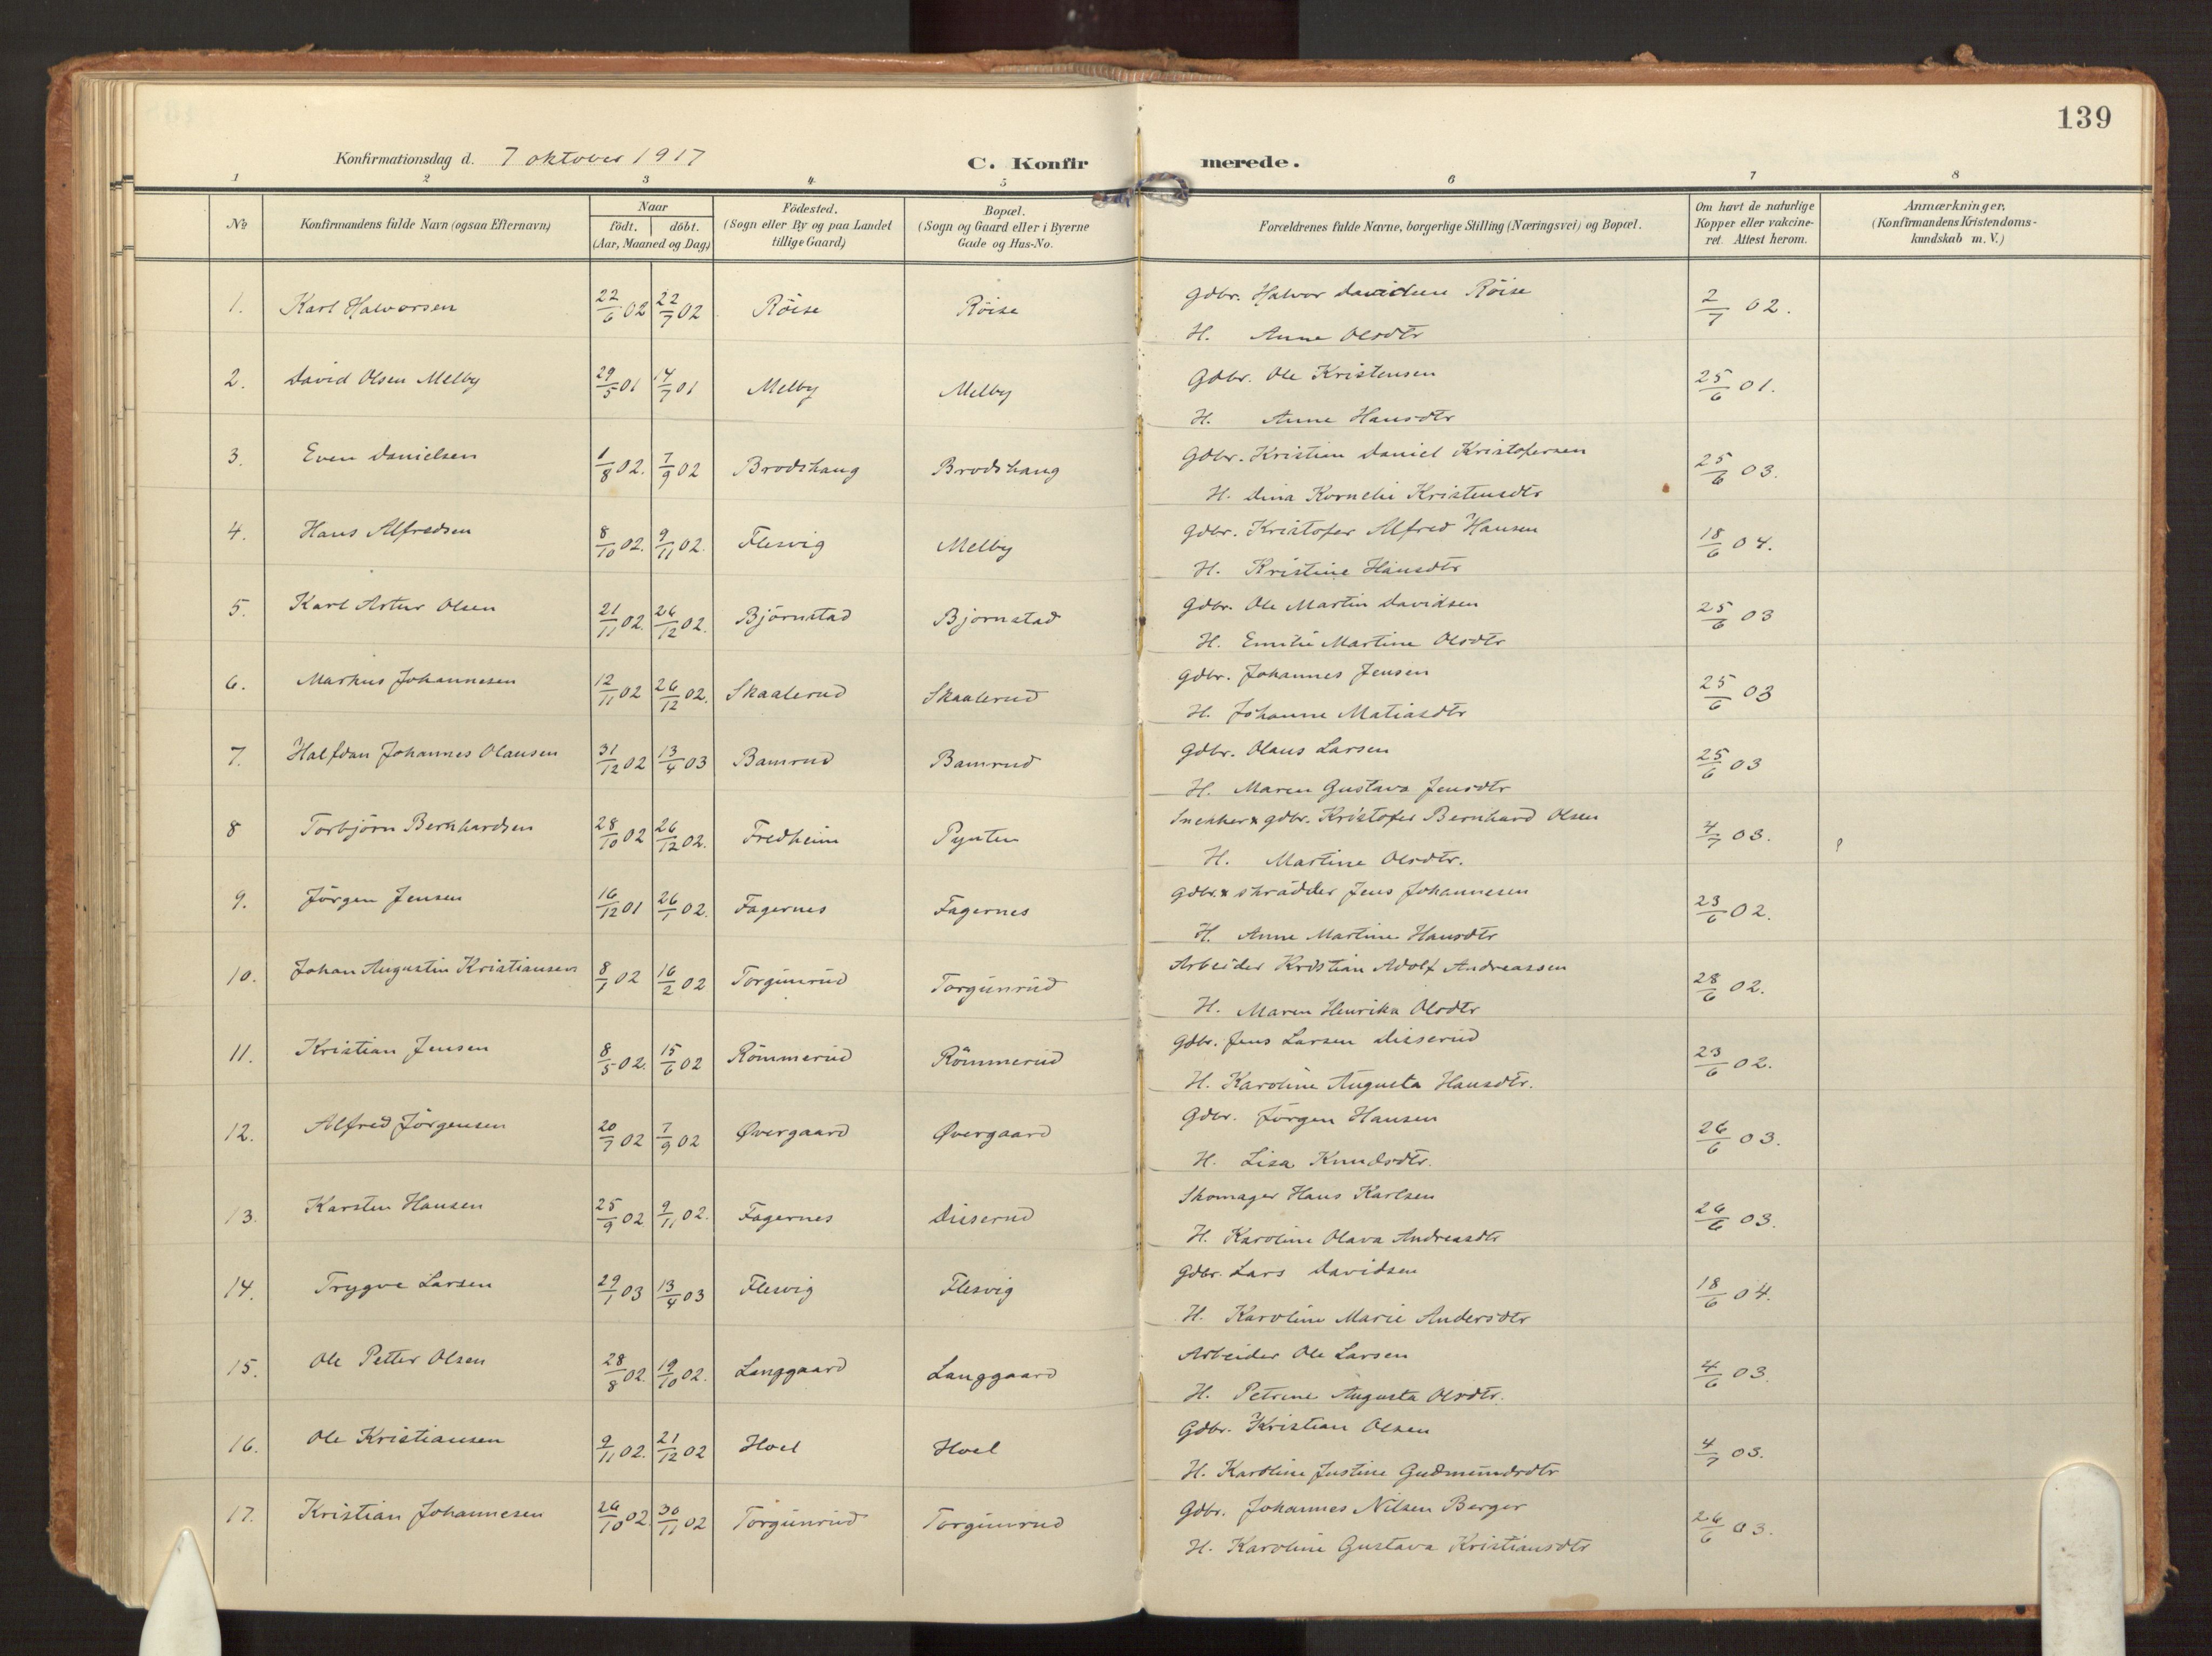 139
Konfirmationsdag d. 7 oktober 1917 C. Konfirmerede.
1 2 3 4 5 6 7 8
No Konfirmandens fulde Navn (ogsaa Efternavn) Naar födt. döbt. (Aar, Maaned og Dag) Födested. (Sogn eller By og paa Landet tillige Gaard) Bopæl. (Sogn og Gaard eller i Byerne Gade og Hus-No. Forældrenes fulde Navne, borgerlige Stilling (Næringsvei) og Bopæl. Om havt de naturlige Kopper eller vakcineret. Attest herom. Anmærkninger. (Konfirmandens Kristendomskundskab m. V.)
1. Karl Halvorsen 22/6 02 22/7 02 Röise Röise Gdbr. Halvor Davidsen Röise 2/7 02.
H. Anne Olsdtr
2. David Olsen Melby 29/5 01 14/7 01 Melby Melby Gdbr. Ole Kristensen 25/6 01.
H. Anne Hansdtr
3. Even Danielsen 1/8 02. 7/9 02 Brodshaug Brodshaug Gdbr. Kristian Daniel Kristofersen 25/6 03.
H. Dina Kornelie Kristensdtr
4. Hans Alfredsen 8/10 02. 9/11 02. Flesvig Melby Gdbr. Kristofer Alfred Hansen 18/6 04.
H. Kristine Hansdtr
5. Karl Artur Olsen 21/11 02. 26/12 02. Björnstad Bjornstad Gdbr. Ole Martin Davidsen 25/6 03
H. Emilie Martine Olsdtr
6. Markus Johannesen 12/11 02 26/12 02. Skaalerud Skaalerud Gdbr. Johannes Jensen 25/6 03
H. Johanne Matiasdtr
7. Halfdan Johannes Olausen 31/12 02 13/4 03 Bamrud Bamrud Gdbr. Olaus Larsen 25/6 03
H. Maren Gustava Jensdtr
8 Torbjörn Bernhardsen 28/10 02 26/12 02. Fredheim Pynten Snekker & gdbr. Kristofer Bernhard Olsen 4/7 03.
H. Martine Olsdtr.
9. Jörgen Jensen 16/12 01 26/1 02. Fagernes Fagernes Gdbr. & skrädder Jens Johannesen 23/6 02.
H. Anne Martine Hansdtr
10. Johan Augustin Kristiansen 8/1 02 16/2 02 Torgunrud Torgunrud Arbeider Kristian Adolf Andreassen 28/6 02.
H. Maren Henrika Olsdtr
11. Kristian Jensen 8/5 02. 15/6 02 Römmerud Römmerud Gdbr. Jens Larsen Diserud 23/6 02.
H. Karoline Augusta Hansdtr.
12. Alfred Jörgensen 20/7 02 7/9 02 Øvergaard Øvergaard Gdbr. Jörgen Hansen 26/6 03.
H. Lisa Knudsdtr.
13. Karsten Hansen 25/9 02 9/11 02. Fagernes Diserud Skomager Hans Karlsen 26/6 03.
H. Karoline Olava Andreasdtr
14. Trygve Larsen 29/1 03 13/4 03 Flesvig Flesvig Gdbr. Lars Davidsen 18/6 04.
H. Karoline Marie Andersdtr
15. Ole Petter Olsen 28/8 02. 19/10 02. Langgaard Langgaard Arbeider Ole Larsen 4/6 03.
H. Petrine Augusta Olsdtr.
16. Ole Kristiansen 9/11 02. 21/12 02 Hoel Hoel Gdbr. Kristian Olsen 4/7 03.
H. Karoline Justine Gudmundsdtr
17. Kristian Johannesen 26/10 02. 30/11 02 Torgunrud Torgunrud Gdbr. Johannes Nilsen Berger 26/6 03.
H. Karoline Gustava Kristiansdtr